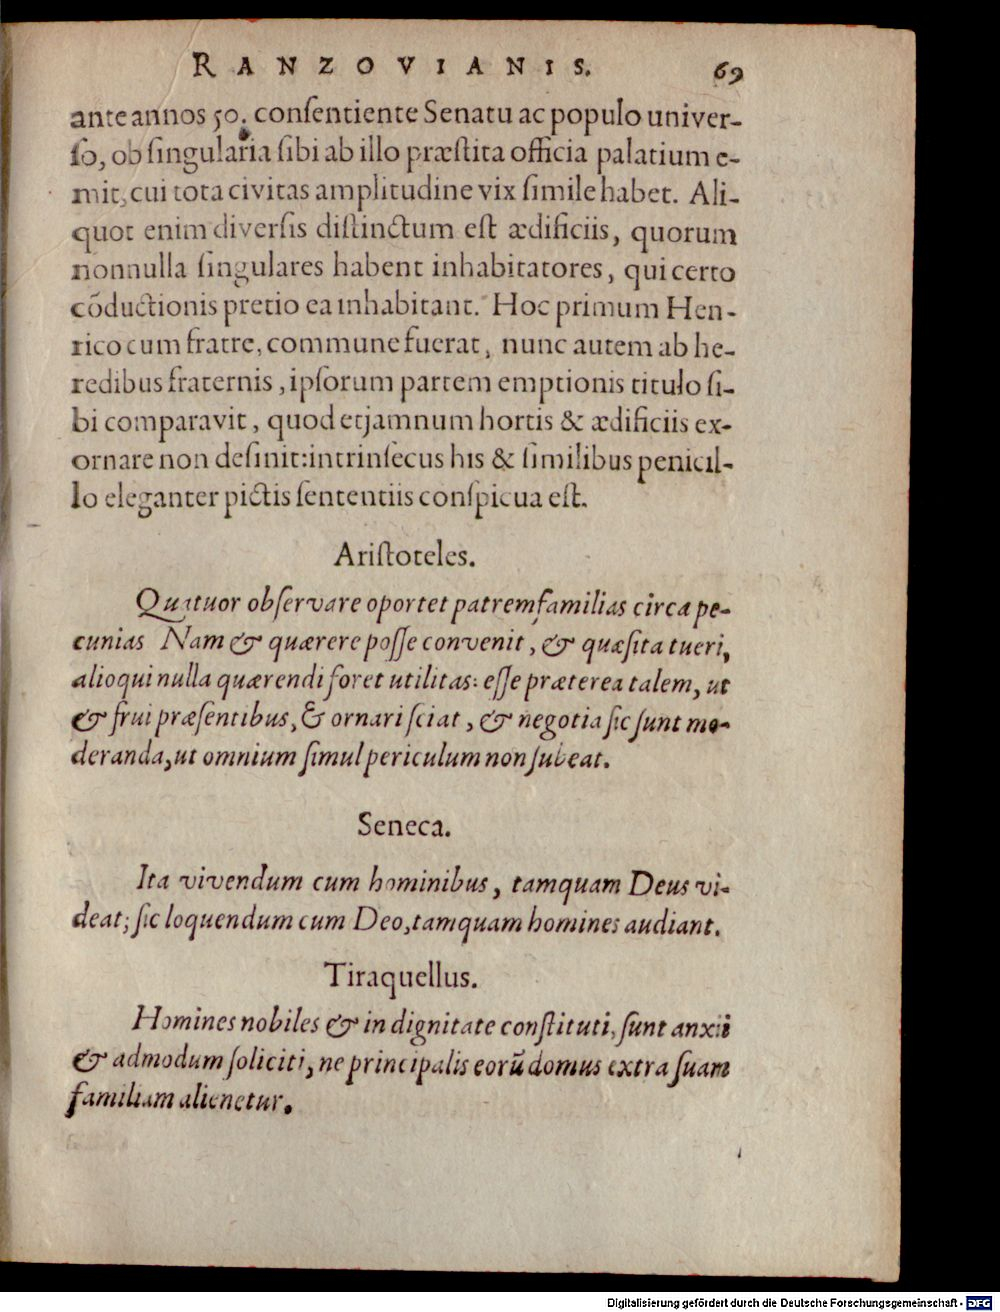 RANZOVIANIS. 69
ante annos 50. conſentiente Senatu ac populo univer-
ſo, ob ſingularia ſibi ab illo præſtita officia palatium e-
mit, cui tota civitas amplitudine vix ſimile habet. Ali-
quot enim diverſis diſtinctum eſt ædificiis, quorum
nonnulla ſingulares habent inhabitatores, qui certo
cõductionis pretio ea inhabitant. Hoc primum Hen-
rico cum fratre, commune fuerat, nunc autem ab he-
redibus fraternis, ipſorum partem emptionis titulo ſi-
bi comparavit, quod etjamnum hortis & ædificiis ex-
ornare non deſinit: intrinſecus his & ſimilibus penicil-
lo eleganter pictis ſententiis conſpicua eſt.
Ariſtoteles.
Quatuor obſervare oportet patremfamilias circa pe-
cunias Nam & quærere poſſe convenit, & quæſita tueri,
alioqui nulla quærendi foret utilitas: eſſe præterea talem, ut
& frui præſentibus, & ornari ſciat, & negotia ſic ſunt mo-
deranda, ut omnium ſimul periculum non ſubeat.
Seneca.
Ita vivendum cum hominibus, tamquam Deus vi-
deat; ſic loquendum cum Deo, tamquam homines audiant.
Tiraquellus.
Homines nobiles & in dignitate conſtituti, ſunt anxii
& admodum ſoliciti, ne principalis eorũ domus extra ſuam
familiam alienetur.
Digitalisierung gefördert durch die Deutsche Forschungsgemeinschaft - DFG